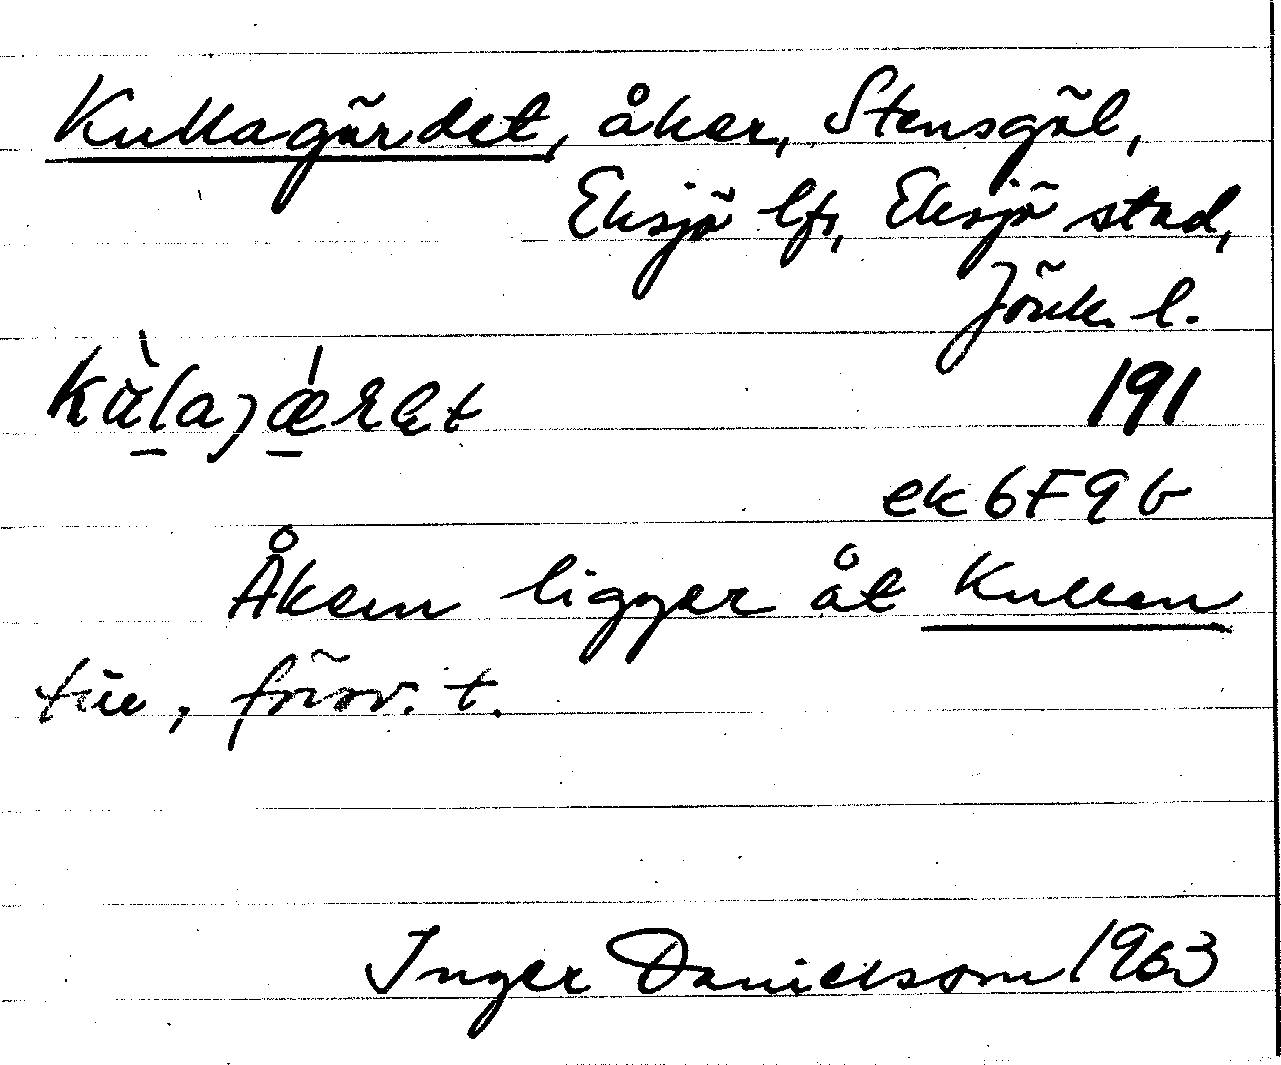 Kullagärdet, åker, Stensgöl,
Eksjö lfs, Eksjö stad,
Jönk. l.
191
ek 6F9b
Åkern ligger åt Kullen
till, förov. t.
Inger Danielsson 1963